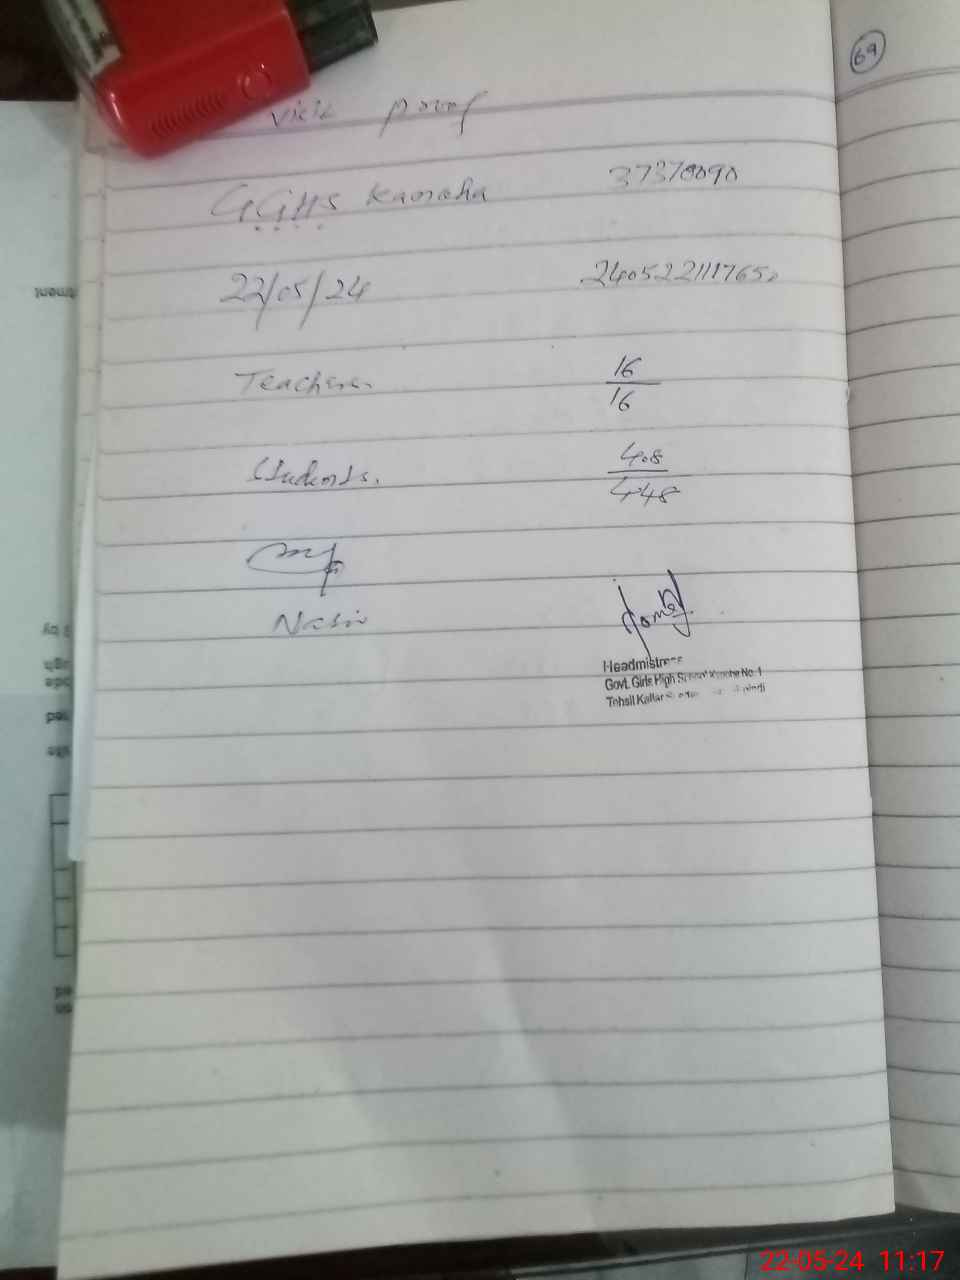 69
visit proof
GGHS Kanoha 37370090
22/05/24 240522111765
Teachers 16/16
Students. 408/448
Nasir
Headmistress
Govt. Girls High School Kanoha No. 1
Tehsil Kallar
22-05-24 11:17